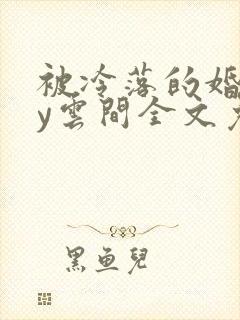 被冷落的婚
y雲間全文
黑魚兒